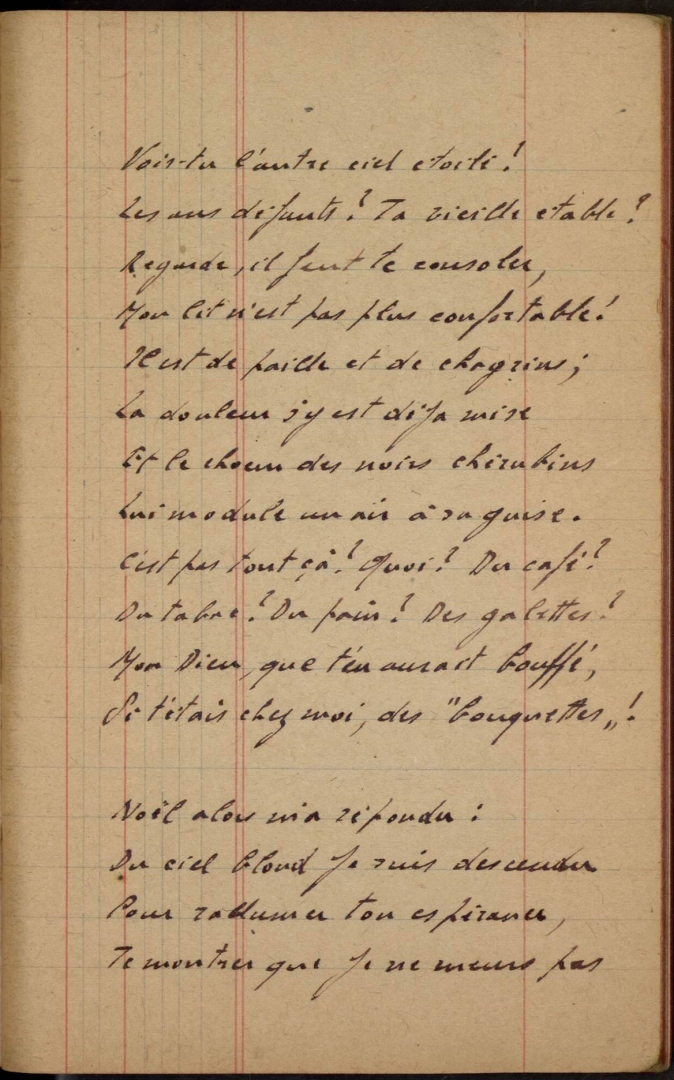 Vois-tu l'autre ciel etoilé!
Les ans défunts? Ta vieille etable?
Regarde, il faut te consoler,
Mon lit n'est pas plus confortable!
Il est de paille et de chagrins;
La douleur s'y est déja mise
Et le choeur des noirs chérubins
Lui module un air à sa guise.
C'est pas tout çà! Quoi? Du café?
Du tabac? Du pain? Des galettes?
Mon Dieu, que t'en aurait bouffé,
Si t'étais chez moi, des "bouquettes„!
Noël alors m'a répondu:
Du ciel blond je suis descendu
Pour rallumer ton espérance,
Te montrer que je ne meurs pas